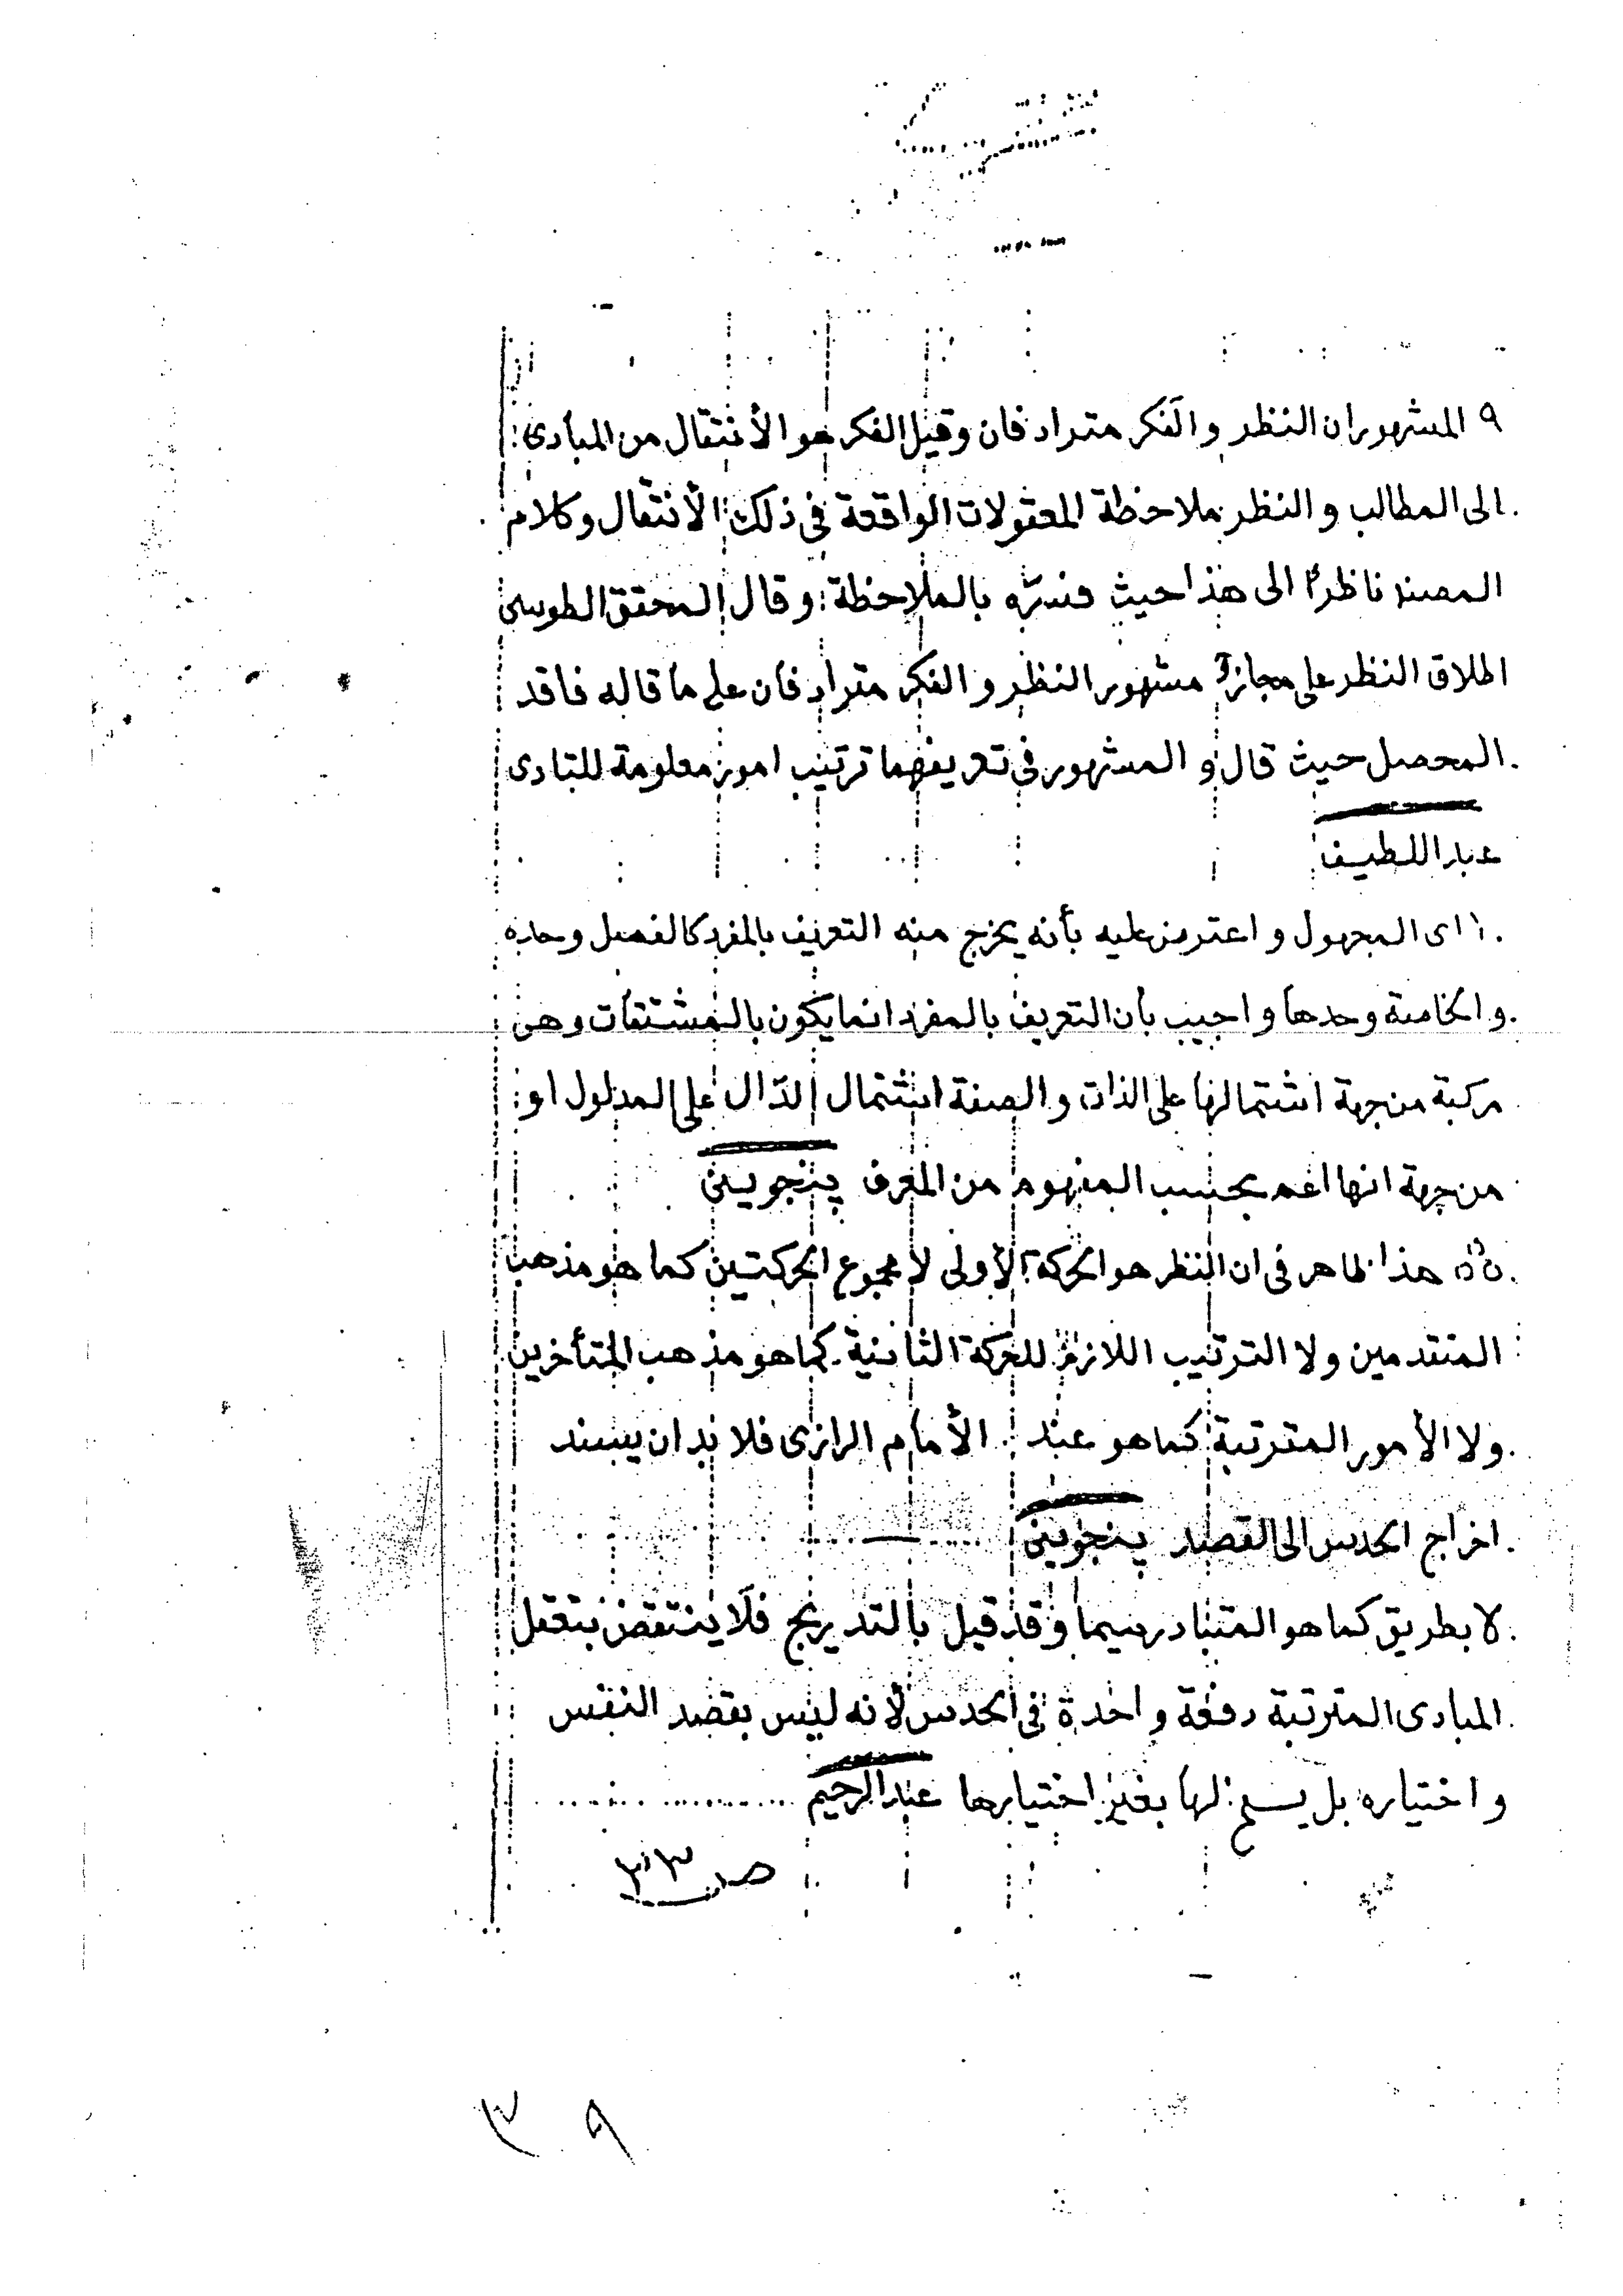 ٩ المشهور ان النظر والفكر مترادفان وقيل الفكر هو الأنتقال من المبادى
الى المطالب والنظر ملاحظة المعقولات الواقعة فى ذلك الأنتقال وكلام
المصنف ناظرًا الى هذا حيث فسّره بالملاحظة وقال المحقق الطوسى
اطلاق النظر على مجاز مشهور النظر والفكر مترادفان على ما قاله فاقد
المحصل حيث قال والمشهور فى تعريفهما ترتيب امور معلومة للتبادى
عبد اللطيف
١٠ اى المجهول واعترض عليه بأنه يخرج منه التعريف بالمفرد كالفصل وحده
والخاصة وحدها واجيب بأن التعريف بالمفرد انما يكون بالمشتقات وهى
مركبة من جهة اشتمالها على الذات والصفة اشتمال الدّال على المدلول او
من جهة انها اعم بحسب المفهوم من المعرف پنجوينى
هذا ظاهر فى ان النظر هو الحركة الأولى لا مجموع الحركتين كما هو مذهب
المتقدمين ولا الترتيب اللازم للحركة الثانية كما هو مذهب المتأخرين
ولا الأمور المترتبة كما هو عند الأمام الرازى فلا بد ان يسند
اخراج الحدس الى القصد پنجوينى
لا بطريق كما هو المتبادر سيما وقد قيل بالتدريج فلا ينتقض بتعقل
المبادى المترتبة دفعة واحدة فى الحدس لأنه ليس بقصد النفس
واختياره بل يسنح لها بغير اختيارها عبد الرحيم
صـ ٣٣
٣٩